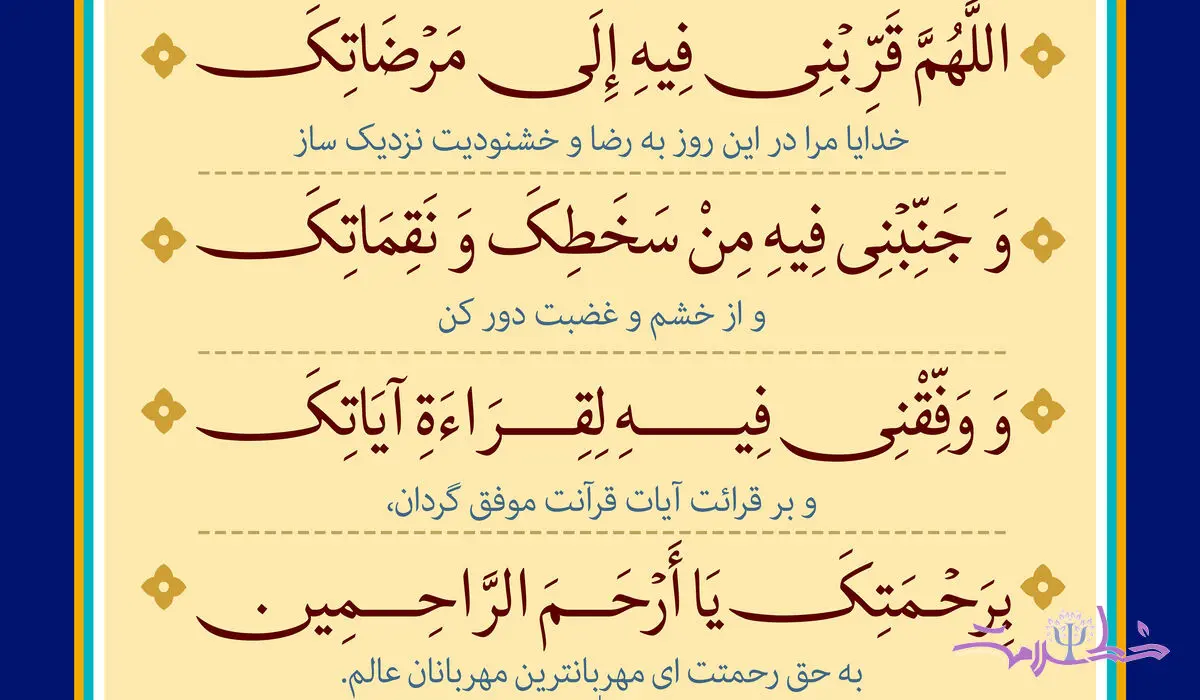 اللَّهُمَّ قَرِّبْنِی فِیهِ إِلَی مَرْضَاتِکَ
خدایا مرا در این روز به رضا و خشنودیت نزدیک ساز
وَ جَنِّبْنِی فِیهِ مِنْ سَخَطِکَ وَ نَقِمَاتِکَ
و از خشم و غضبت دور کن
وَ وَفِّقْنِی فِیهِ لِقِرَاءَةِ آیَاتِکَ
و بر قرائت آیات قرآنت موفق گردان،
بِرَحْمَتِکَ یَا أَرْحَمَ الرَّاحِمِین .
به حق رحمتت ای مهربانترین مهربانان عالم.